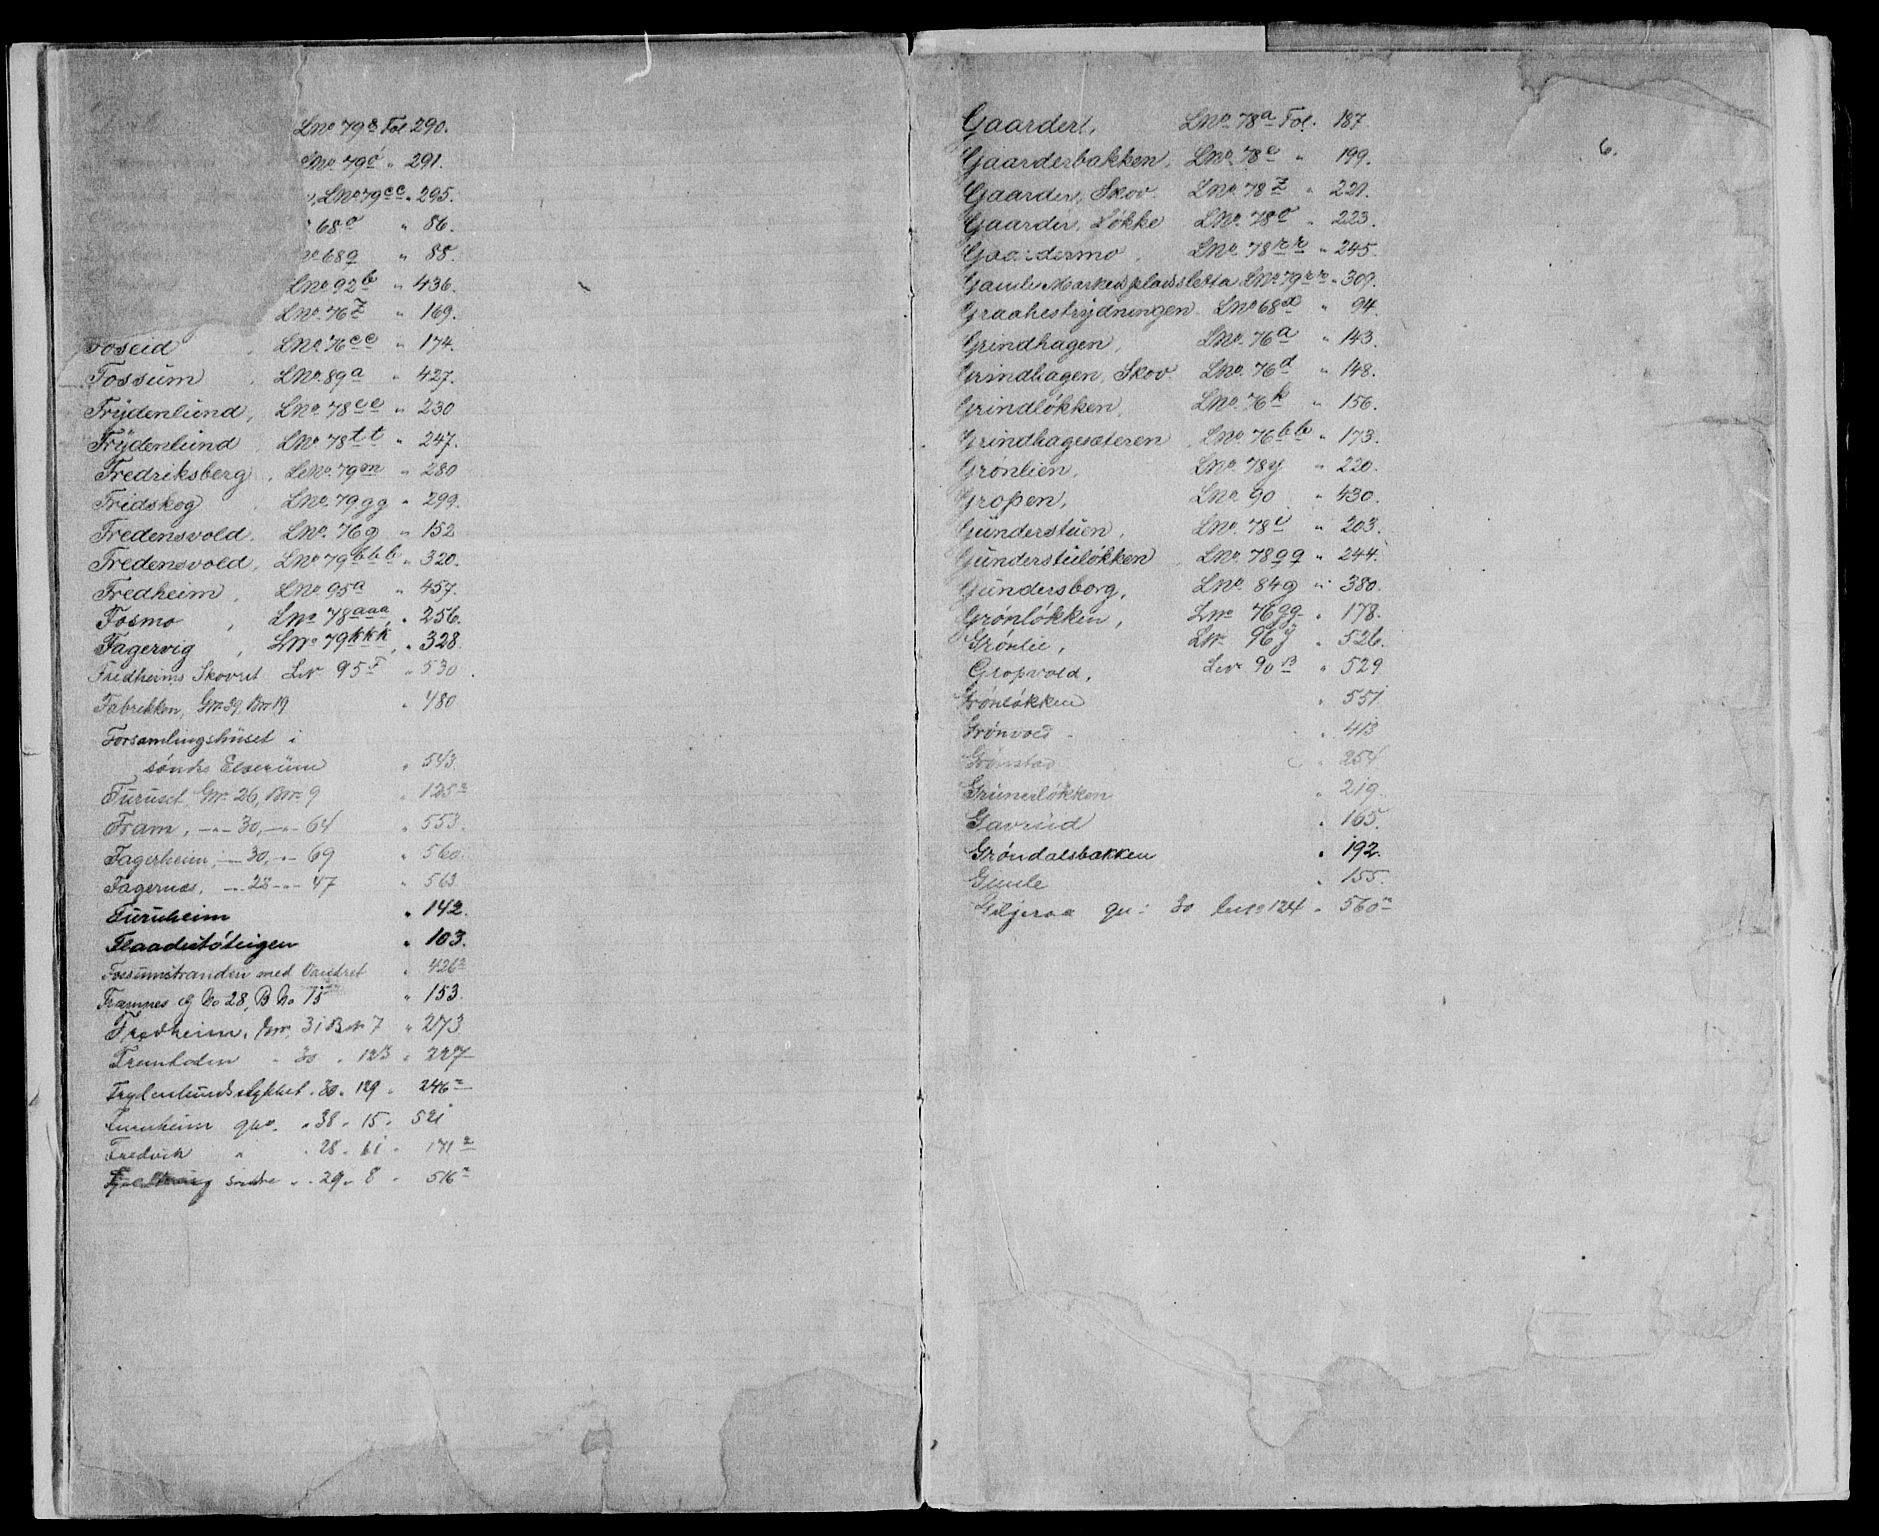 LNo 79 Fol. 290.
No. 79 " 291.
, LNo 79cc " 295.
68o " 86.
No 68q " 88.
LNo 92b " 436.
LNo. 76z " 169.
Foseid , LNo. 76cc " 174.
Fossum , LNo. 89a " 427.
Frydenlund, LNo. 78cc " 230
Frydenlund , LNo 78tt " 247.
Fredriksberg , LNo. 79m " 280
Fridskog , LNo. 79gg " 299.
Fredensvold, LNo. 76g " 152
Fredensvold, LNo 79bbb " 320.
Fredheim , LNo 95a " 457.
Fosmo , LNo 78aaa, " 256.
Fagervig , LNo 79kkk, " 328.
Fredheims Skovset LNr 95 " 530.
Fabrikken, Gnr. 39, Bnr 19 " 480
Forsamlingshuset i
søndre Elverum " 543.
Furuset, Gnr. 26, Bnr. 9 " 125a
Fram, —"— 30, —"— 64 " 553.
Fagerheim, — 30, —"— 69 " 560.
Fagernæs, —"— 28 —"— 47 " 563
Furuheim " 142.
Flaadestøteigen " 103.
Fossumstranden med Vandret " 426a
Framnes G No 28, B No 15 " 153.
Fredheim, Gnr. 31 Bnr 7 " 273
" 30 " 123 " 227
Frydenlundsstykket " 30 " 129 " 246a
Furuheim gno. " 38 " 15 " 521
Fredvik " " 28 " 61 " 171a
søndre " " 29 " 8 " 516a
6.
Gaarder, LNo. 78a Fol. 187.
Gaarderbakken, LNo. 78e " 199.
Gaarder, Skov. LNo. 78z " 221.
Gaarder, Løkke LNo. 78ø " 223.
Gaardermo , LNo. 78rr " 245.
Gamle Markedspladssletta LNo. 79rr " 309.
Graahestrydningen. LNo 68 " 94.
Grindhagen, LNo. 76a " 143.
Grindhagen, Skov. LNo. 76d " 148.
Grindløkken, LNo. 76k " 156.
Grindhagesæteren , LNo. 76bb " 173.
Grønlien, LNo. 78y " 220.
Gropen, LNo. 90 " 430.
Gunderstuen, LNo. 78i " 203.
Gunderstuløkken , LNo. 78qq " 244.
Gundersborg, LNo. 84g " 380.
Grønløkken, LNo 76gg " 178.
Grønlie, LNr. 96y " 526.
Gropvold, LNr 90 " 529
Grønløkken " 551
Grønvold " 413
Grønstad " 254
Grünerløkken " 219.
Gavrud " 165.
Grøndalsbakken " 192.
Gimle " 155.
Giljeraa gn: 30 bno 124 " 560a